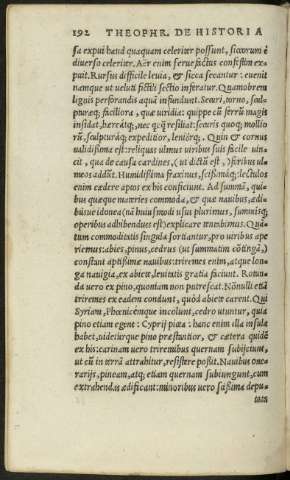 192 THEOPHR. DE HISTORIA
sa expui haud quaquam celeriter possunt, siccorum è
diuerso celeriter. Aër enim serue fictus consistim ex-
puit. Rursus difficile leuia, & sicca secantur: euenit
namque ut ueluti fictili sectio inferatur. Quamobrem
lignis perforandis aquã infundunt. Securi, torno, scul-
puraq; faciliora, quæ uiridia: quippe cũ ferrũ magis
insidat, hereátq;, nec q̃ q̃ resiliat: securis quoq; mollio
rũ, sculpuráq; expeditior, leuiórq;. Quin & cornus
ualidissima est: reliquas ulmus uiribus suis facile uin-
cit, qua de causa cardines, (ut dictũ est,) foribus ul-
meos addũt. Humidissima fraxinus, scissimáq;: lectulos
enim cedere aptos ex his conficiunt. Ad summã, qui-
bus quæque materies commoda, & quæ nauibus, ædi-
búsue idonea (nã huiusmodi usus plurimus, summísq;
operibus adhibendus est) explicare tentabimus. Quã-
tum commoditatis singula sortiantur, pro uiribus ape
riemus: abies, pinus, cedrus (ut summatim cõtingã)
constant aptissimæ nauibus: triremes enim, atque lon-
ga nauigia, ex abiete leuitatis gratia faciunt. Rotun-
da uero ex pino, quoniam non putrescat. Nõnulli etiã
triremes ex eadem condunt, quód abiete carent. Qui
Syriam, Phœnicémque incolunt, cedro utuntur, quia
pino etiam egent: Cyprij picea: hanc enim illa insula
habet, uidetúrque pino præstantior, & cætera quidē
ex his: carinam uero triremibus quernam subijciunt,
ut cũ in terrã attrahitur, resistere possit. Nauibus one-
rarijs, pineam, atq; etiam quernam subiungunt, cum
extrahendas ædificant: minoribus uero